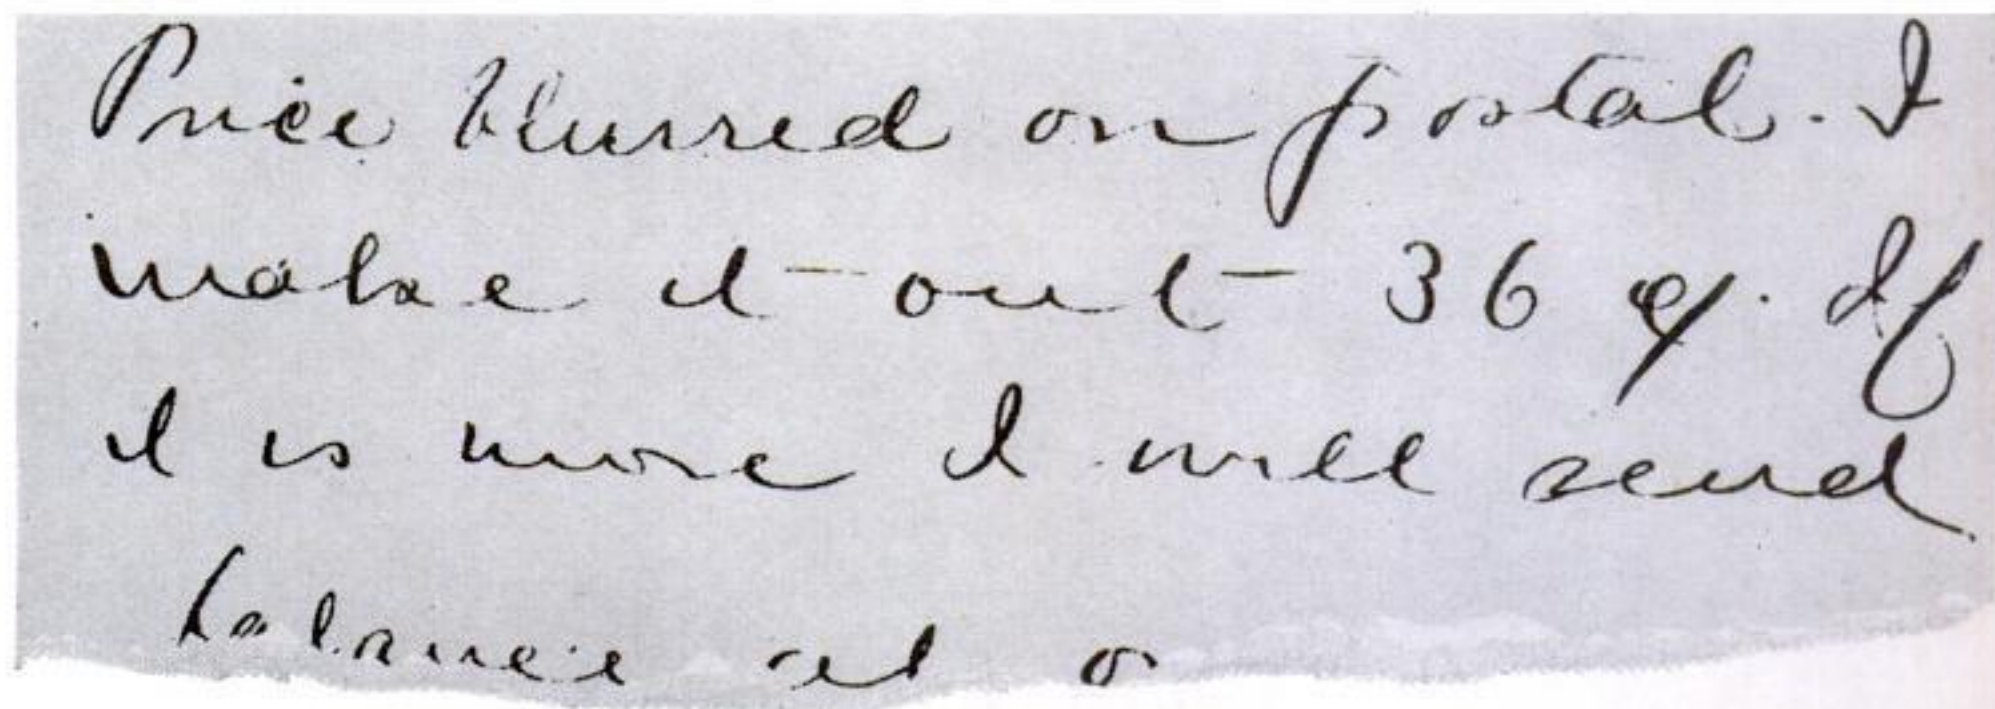 Price blurred on postal. I
make it out 36 ¢. If
it is more I will send
balance at o